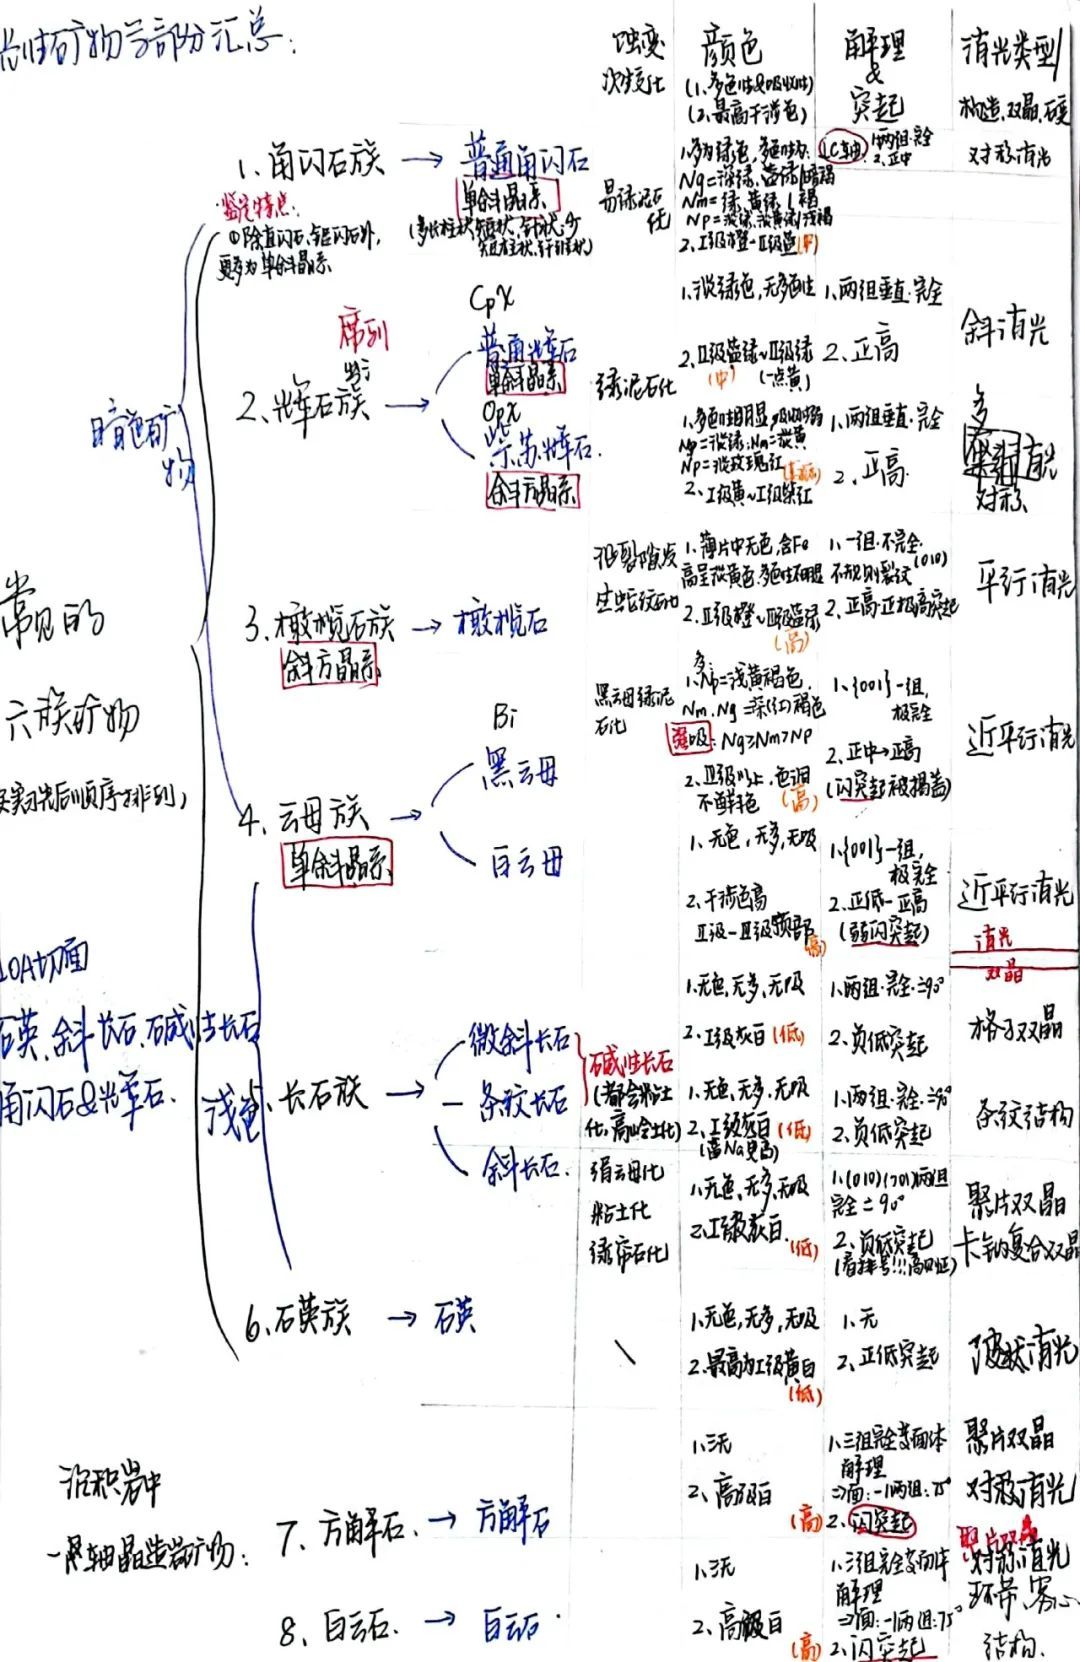 光性矿物学部分汇总:
蚀变
次变化
颜色
(1、多色性&吸收性)
(2、最高干涉色)
解理
&
突起
消光类型
构造、双晶、环
1、角闪石族 → 普通角闪石
单斜晶系
(多长柱状、短柱状、针状、少
鉴定特点:
①除直闪石、铝闪石外,
更多为单斜晶系
易绿泥石
化
1、多为绿色,多色性为:
Ng=深绿、蓝绿/暗褐
Nm=绿、黄绿/褐
Np=浅绿、淡黄绿/浅褐
2、Ⅱ级橙-Ⅱ级蓝(中)
⊥C轴 1、两组·完全
2、正中
对称消光
席列
2、辉石族 →
Cpx
普通辉石
单斜晶系
Opx
紫苏辉石.
斜方晶系
绿泥石化
1、淡绿色,无多色性
2、Ⅱ级蓝绿~Ⅱ级绿
(中) (一点黄)
1、两组垂直·完全
2、正高
斜消光
1、多色性明显,吸收性弱
Ng=淡绿:Nm=淡黄
Np=淡玫瑰红
2、Ⅰ级黄~Ⅰ级紫红
1、两组垂直·完全
2、正高
多
消光
对称
暗色矿
物
3、橄榄石族 → 橄榄石
斜方晶系
沿裂隙发
生蛇纹石化
1、薄片中无色,含Fe
高呈淡黄色·多色性不明显
2、Ⅱ级橙~Ⅲ级蓝绿
(高)
1、一组·不完全·
不规则裂纹(010)
2、正高-正极高突起
平行消光
常见的
六族矿物
(按实习先后顺序排列)
4、云母族 →
单斜晶系
Bi
黑云母
白云母
黑云母绿泥
石化
多
1、Np=浅黄褐色
Nm、Ng=深(红)褐色
强吸:Ng≥Nm>Np
2、Ⅲ级以上,色调
不鲜艳 (高)
1、{001}一组,
极完全
2、正中→正高
(闪突起被掩盖)
近平行消光
1、无色,无多,无吸
2、干涉色高
Ⅱ级-Ⅲ级顶部
(高)
1、{001}一组,
极完全
2、正低-正高
(弱闪突起)
近平行消光
消光
双晶
⊥OA切面
石英、斜长石、碱性长石
角闪石&辉石.
浅色、长石族 →
微斜长石
条纹长石
斜长石.
碱性长石
(都会粘土
化,高岭土化)
绢云母化
粘土化
绿帘石化
1、无色,无多,无吸
2、Ⅰ级灰白(低)
1、两组·完全≃90°
2、负低突起
格子双晶
1、无色、无多、无吸
2、Ⅰ级灰白(低)
(富Na更高)
1、两组·完全≃90°
2、负低突起
条纹结构
1、无色、无多、无吸
2、Ⅰ级灰白.
(低)
1、(010)(001)两组
完全≃90°
2、负低突起
(看排号!!!高则正)
聚片双晶
卡钠复合双晶
6、石英族 → 石英
\
1、无色,无多,无吸
2、最高为Ⅰ级黄白
(低)
1、无
2、正低突起
波状消光
沉积岩中
一般轴晶造岩矿物:
7、方解石. → 方解石
1、三无
2、高级白
(高)
1、三组完全菱面体
解理
⇒面:-1两组:75°
2、闪突起
聚片双晶
对称消光
8、白云石. → 白云石.
1、三无
2、高级白
(高)
1、三组完全菱面体
解理
⇒面:-1两组:75°
2、闪突起
聚片双晶
对称消光
环带、雾心
结构.